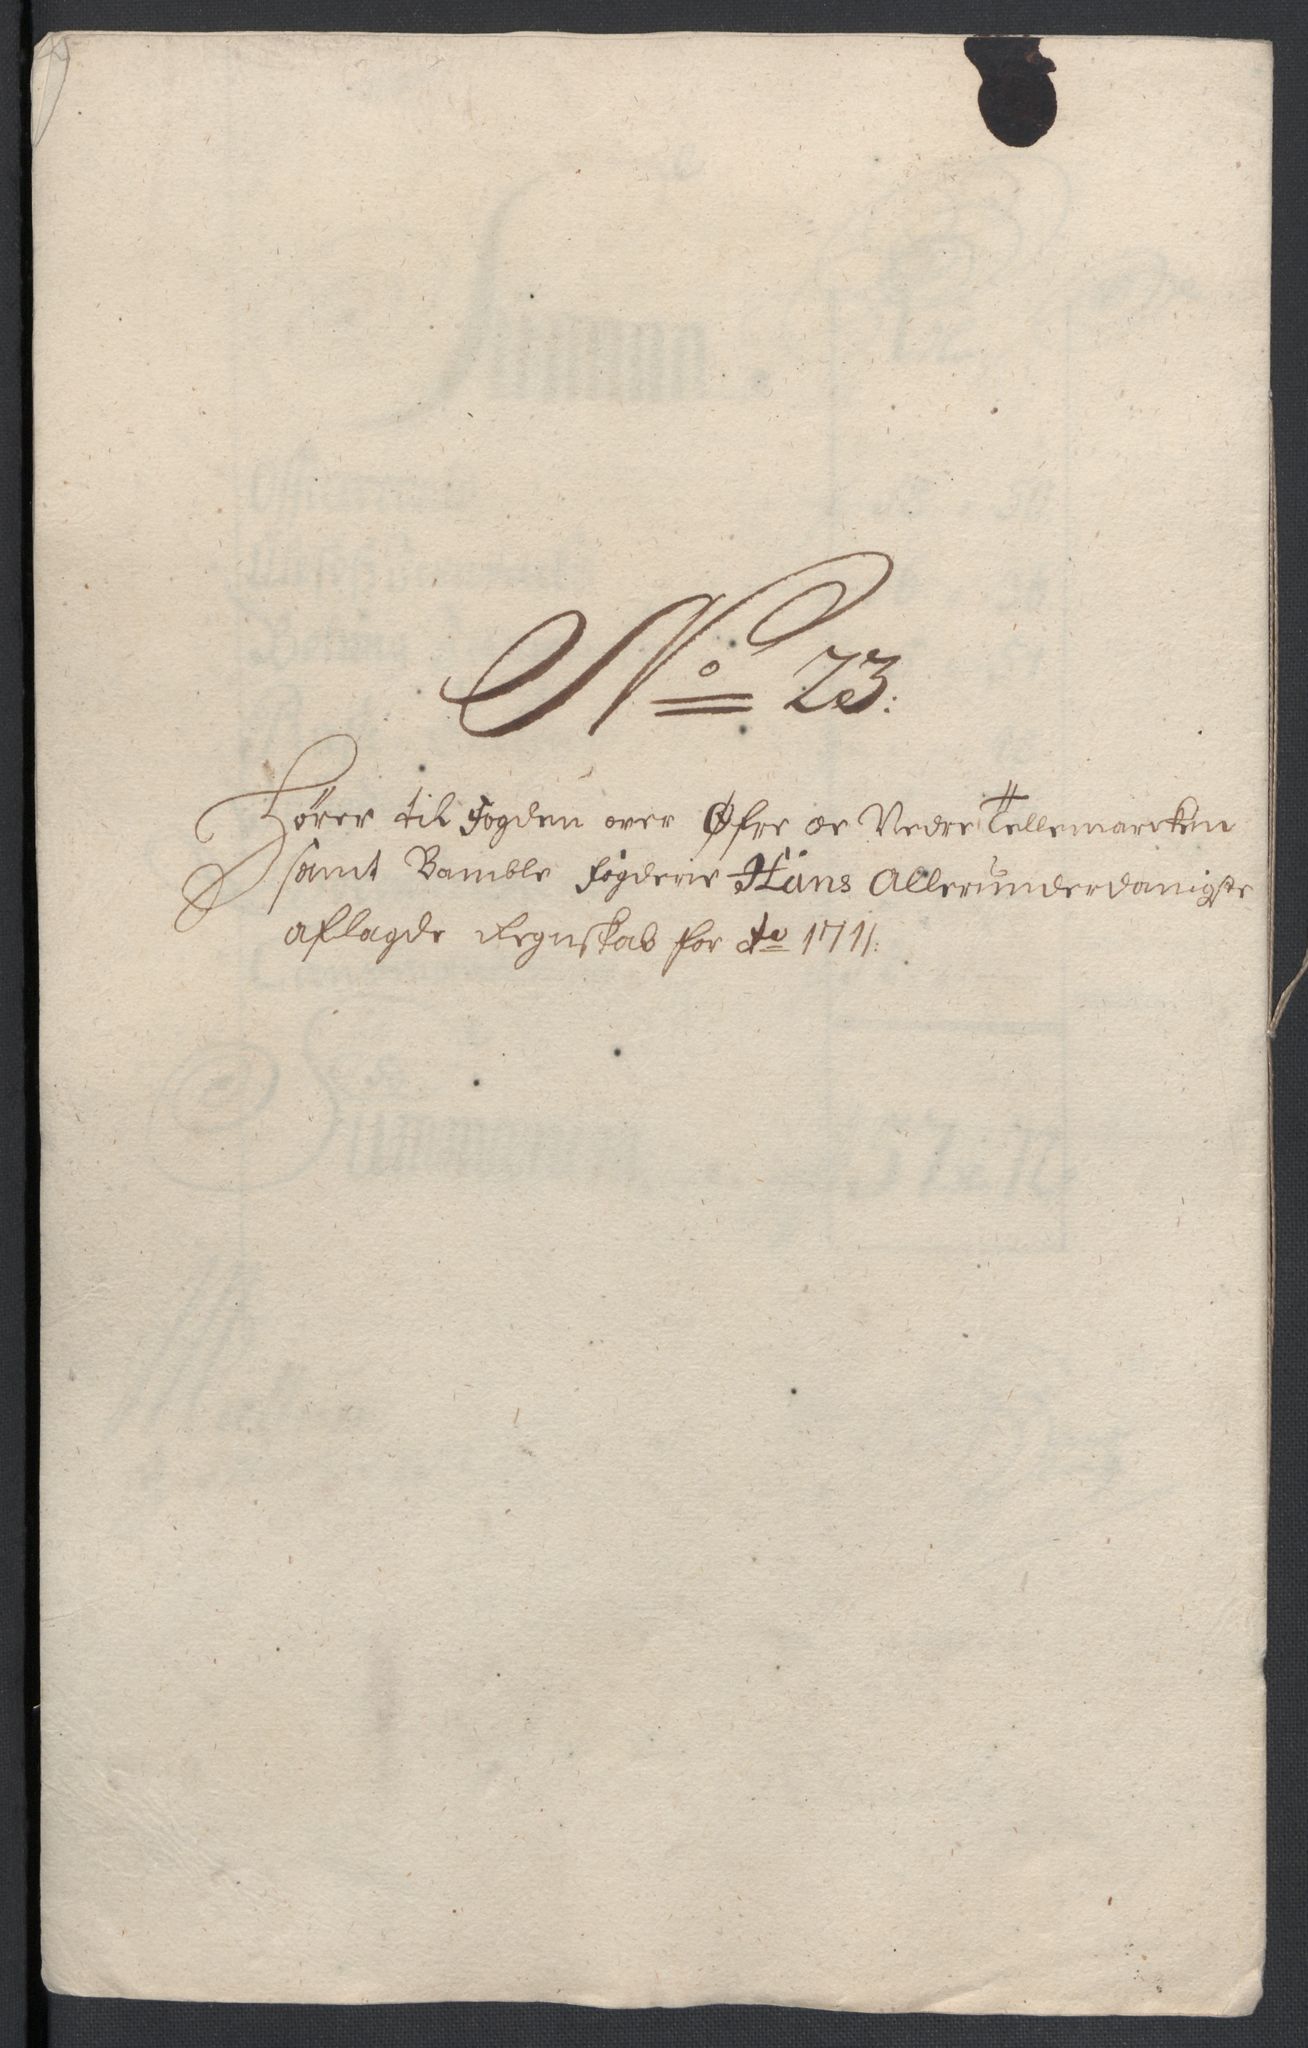 No 23.
Hører til Fogden over Øfre oc Nedre Tellemarcken
samt Bamble Fogderie Hans Allerunderdanigste
aflagde Regnskab for Ao 1711.